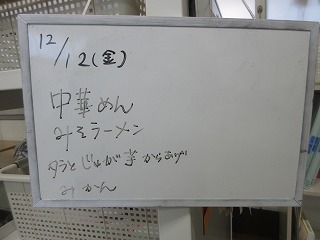 12/12(金)
中華めん
みそラーメン
タラとじゃが芋からあげ
みかん